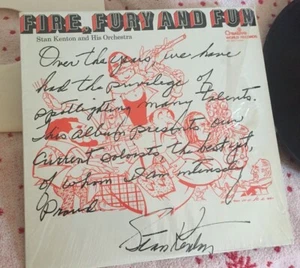 FIRE, FURY AND FUN
Stan Kenton and His Orchestra
Creative
WORLD RECORDS
Over the years, we have
had the privilege of
spotlighting many talents.
This album presents our
current soloists, the best yet,
of whom I am intensely
Proud
Stan Kenton